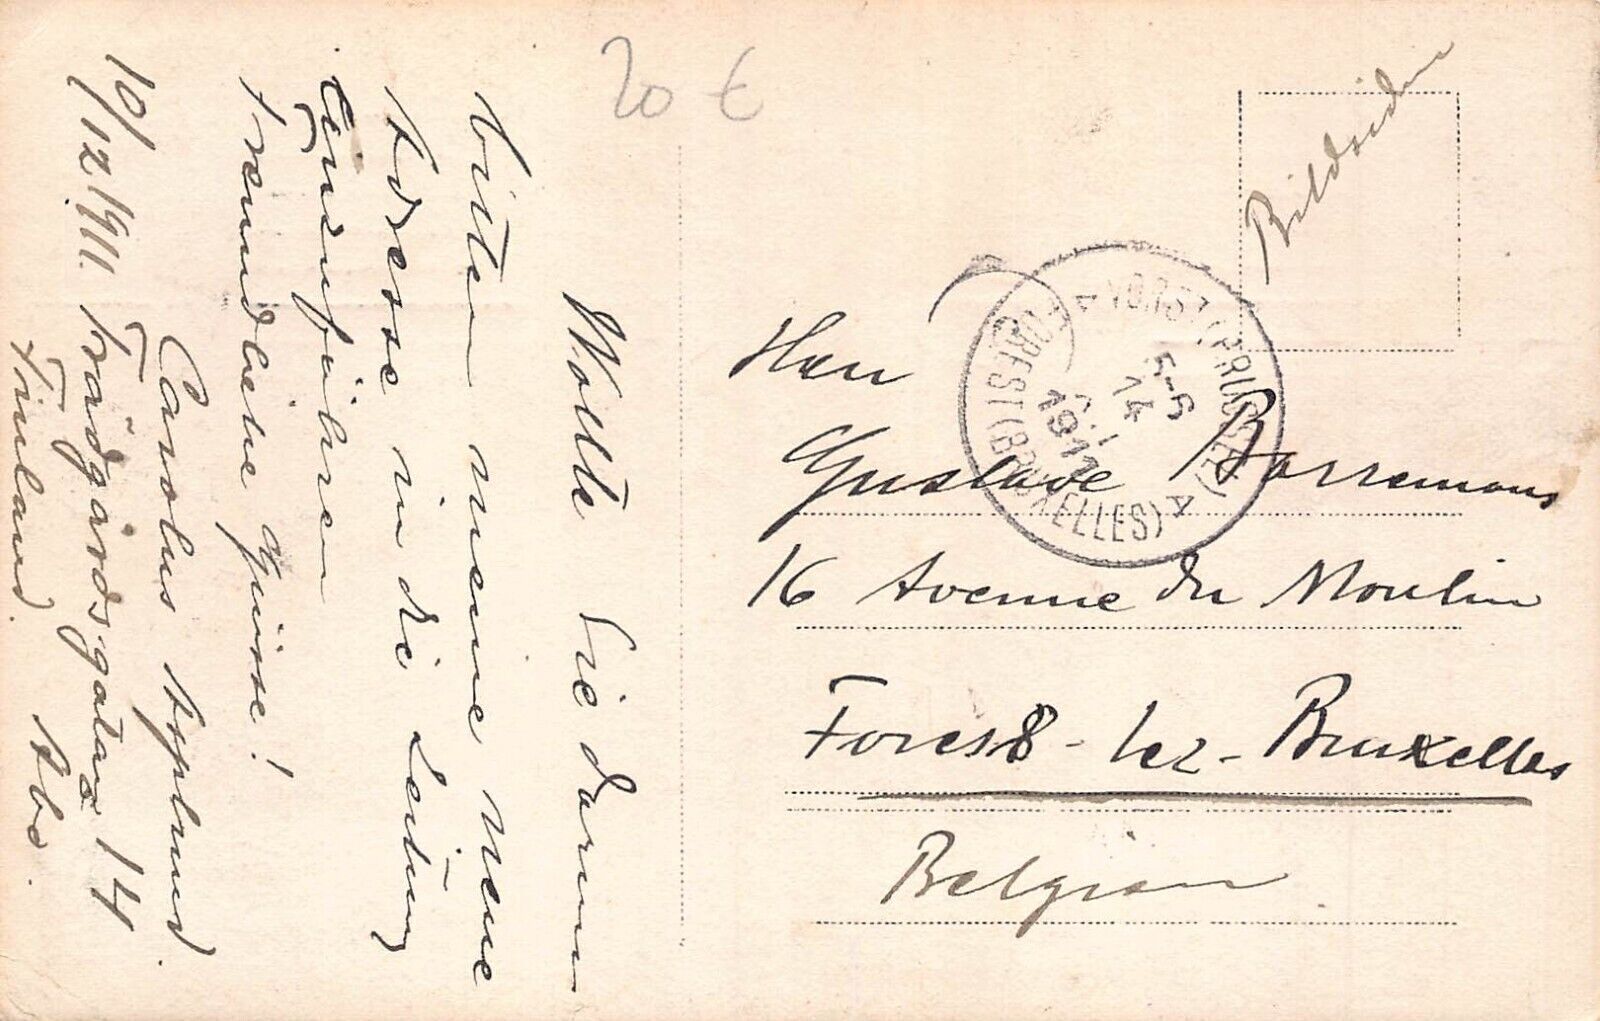 Wollte Sie darum
bitten meine neue
Adresse in die Zeitung
einzuführen
Freundliche Grüsse!
Carolus Asplund.
10/12 1911. Trädgårdsgatan 14
Åbo.
Finland.
20 €
Bildsiden
VORST (BRUSSEL)
5-6
14
1911
FOREST (BRUXELLES)
Herr
Gustave Borremans
16 Avenue du Moulin
Forest-lez-Bruxelles
Belgien